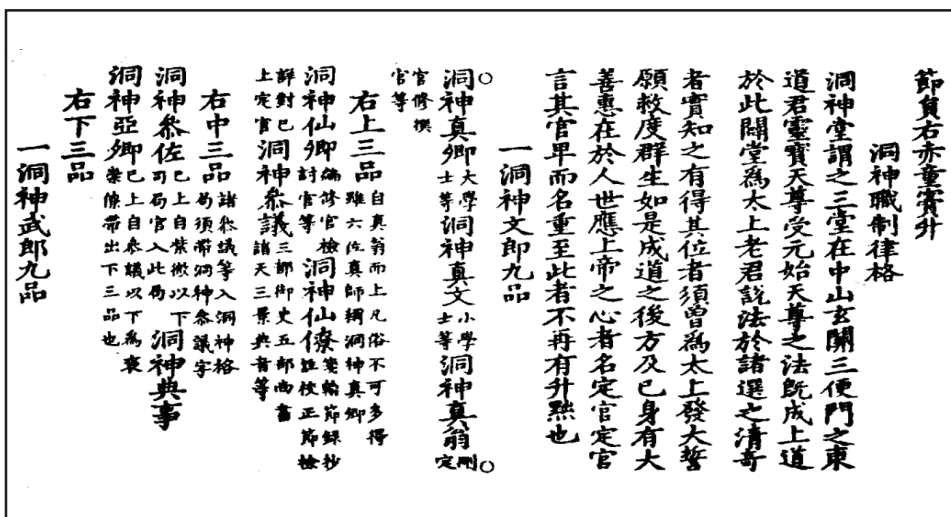 節負右赤重賓升
洞神職制律格
洞神堂謂之三堂在中山玄關三便門之東
道君靈寶天尊受元始天尊之法既成上道
於此闢堂為太上老君說法於諸選之清奇
者實知之有得其位者須曾為太上發大誓
願救度群生如是成道之後方及已身有大
善惠在於人世應上帝之心者名定官定官
言其官卑而名重至此者不再有升黜也
一洞神文郎九品
洞神真卿大學士等洞神真文小學士等洞神真翁刪定
官修撰官等
右上三品自真翁而上凡俗不可多得雖六佐真師稱洞神真卿
洞神仙卿編修官檢討官等洞神仙僚箋輸節錄抄註校正節檢
詳對已上定官洞神參議三部御史五部尚書諸天三景典者等
右中三品諸參議等入洞神格局須帶洞神參議字
洞神參佐已上自紫微以下司局官入此局洞神典事
洞神亞卿已上自參議以下為褒崇帶出下三品也
右下三品
一洞神武郎九品